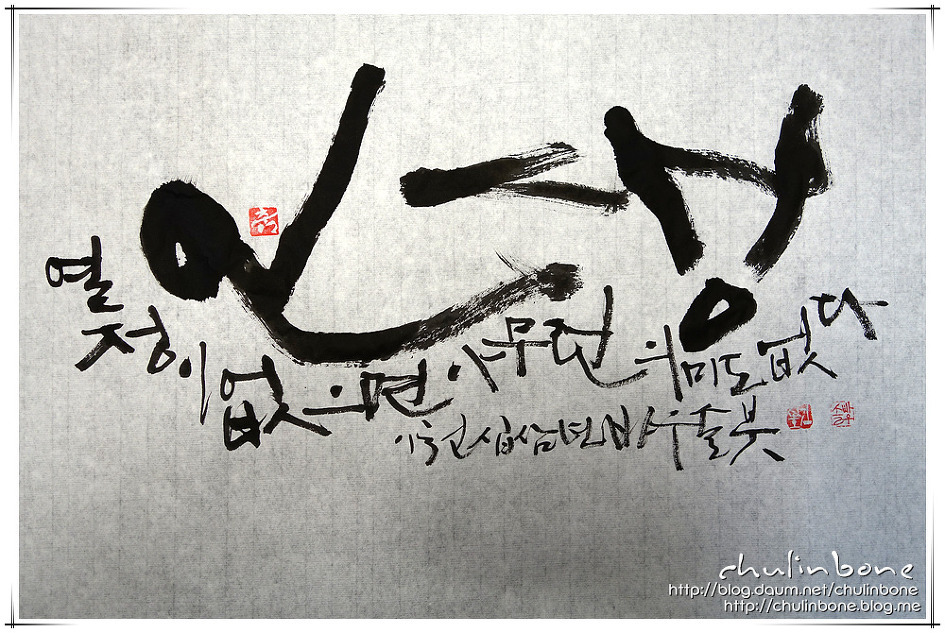 인생
열정이 없으면 아무런 의미도 없다
이천십삼년 바우솔붓
chulinbone
http://blog.daum.net/chulinbone
http://chulinbone.blog.me